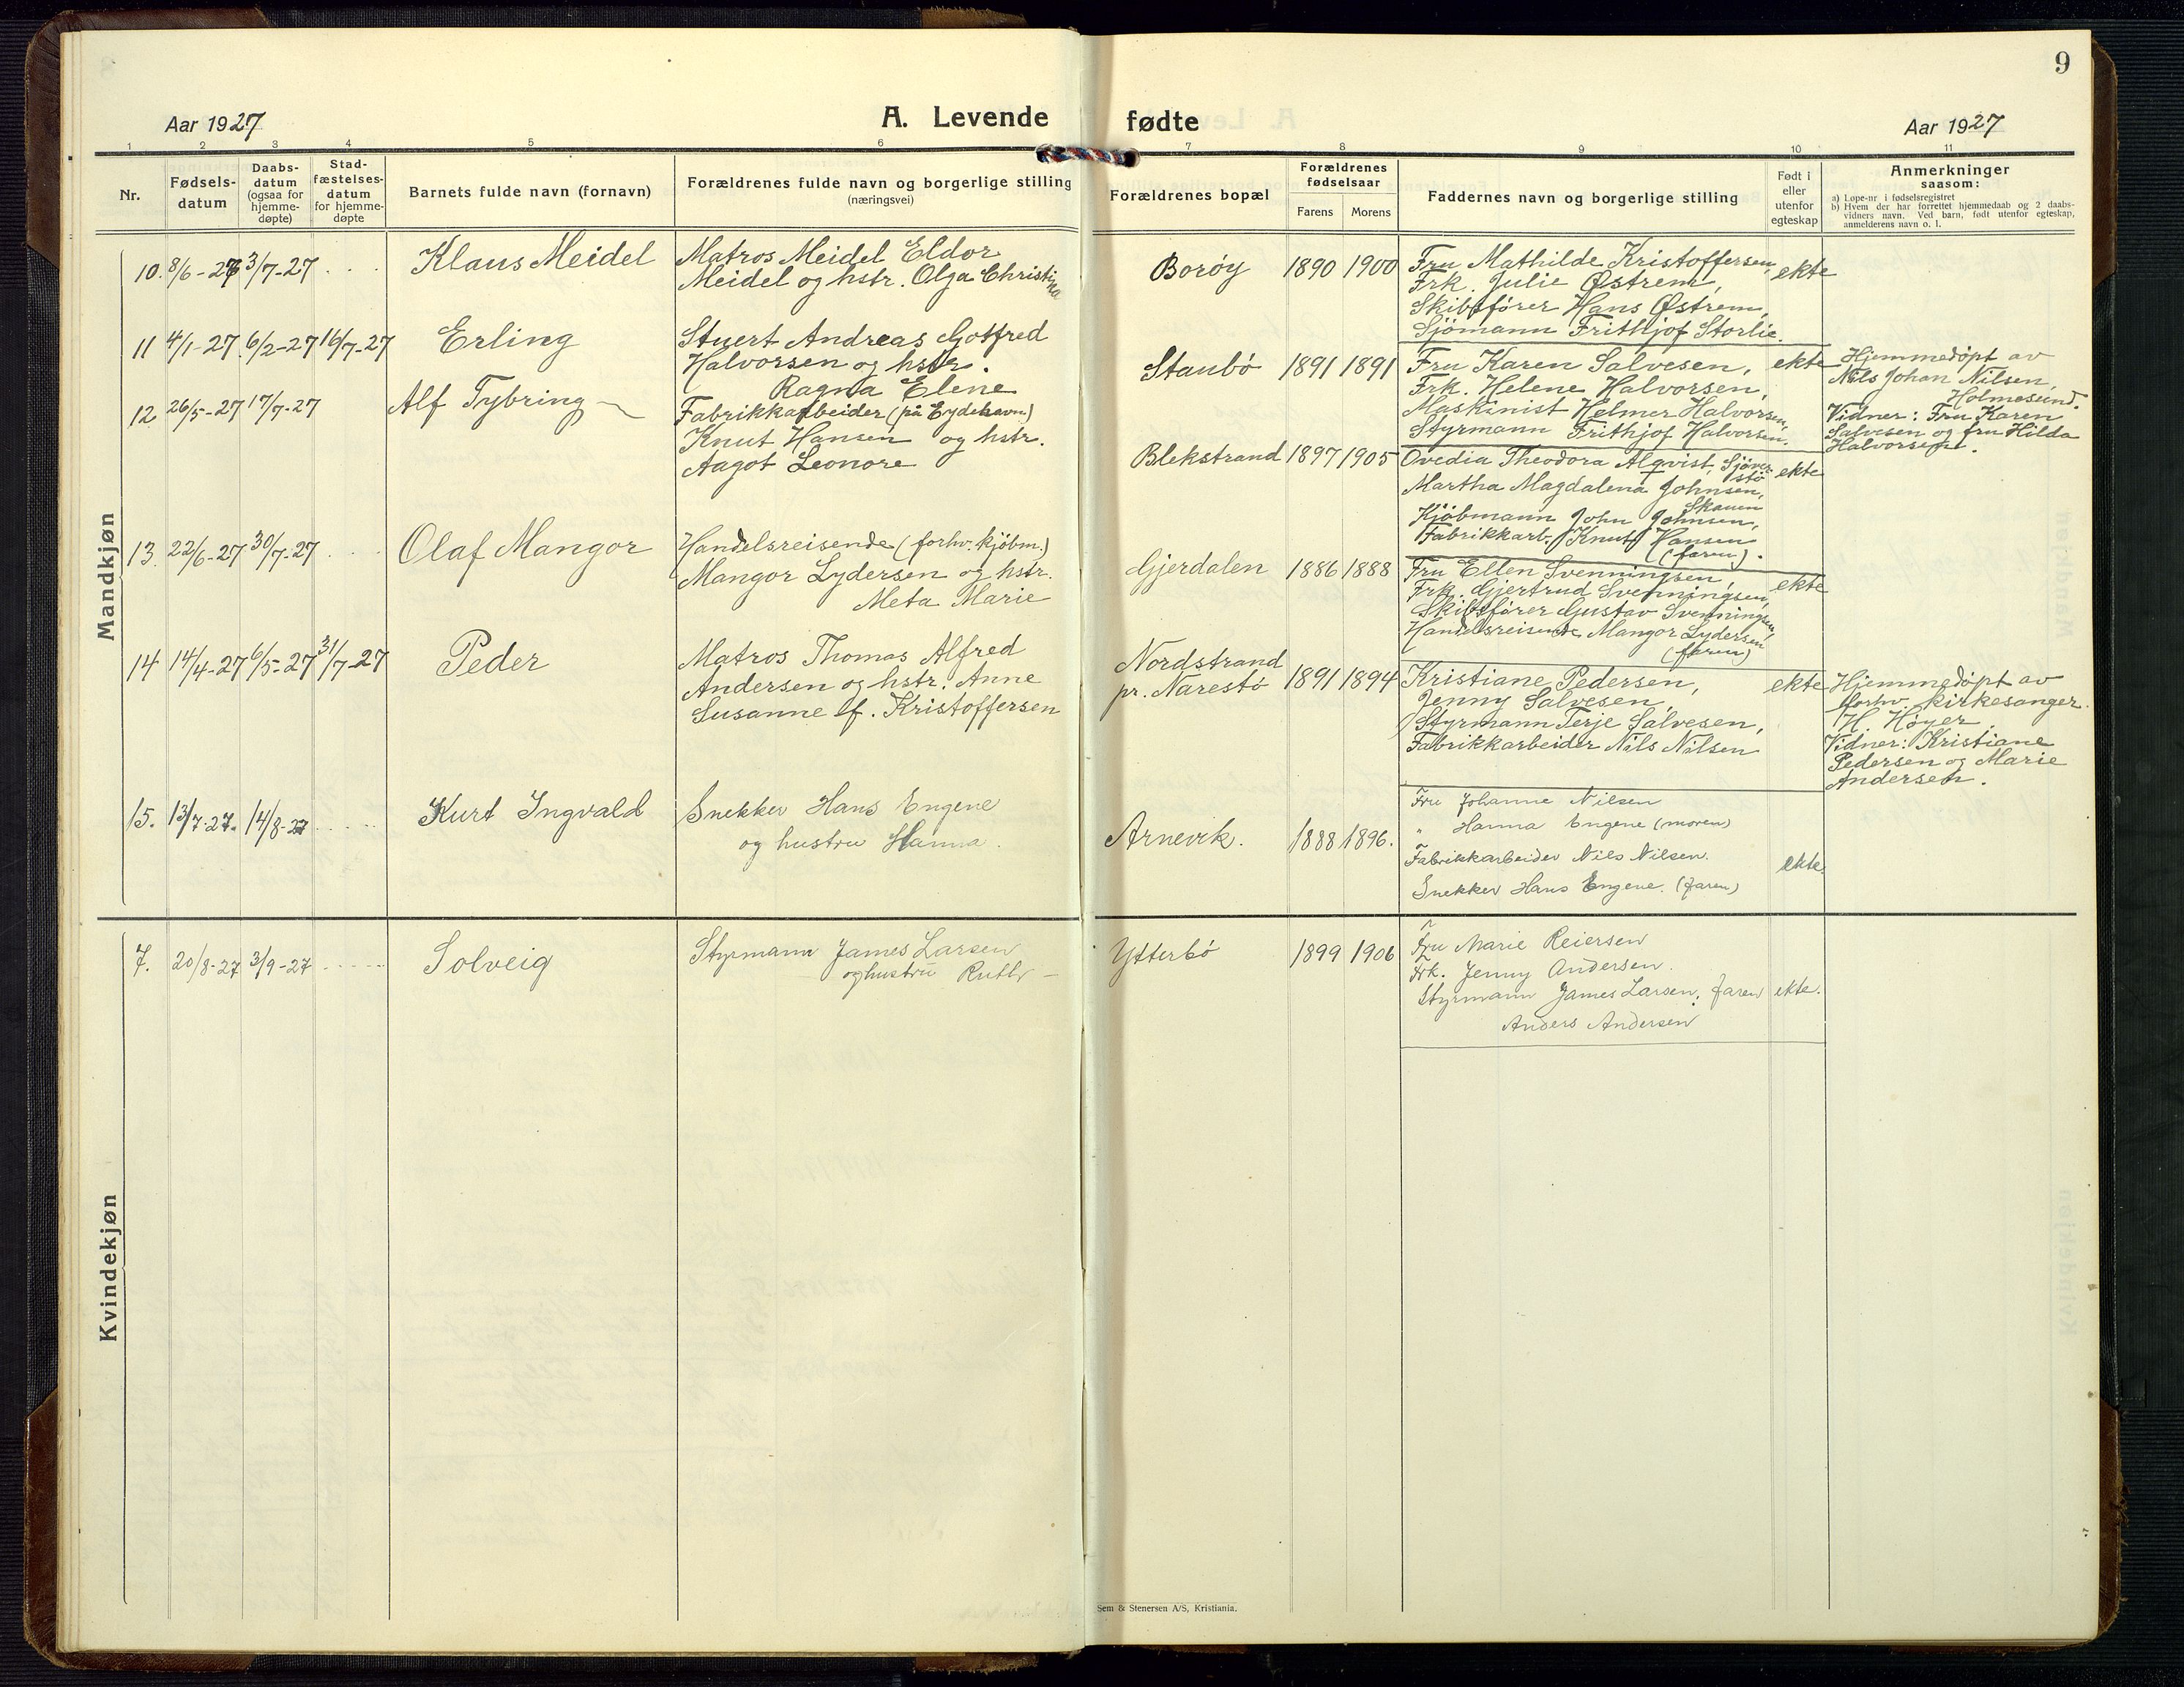 9
Aar 1927
A. Levende fødte
Aar 1927
1 2 3 4 5 6 7 8 9 10 11
Nr.
Fødsels-
datum
Daabs-
datum
(ogsaa for
hjemme-
døpte)
Stad-
fæstelses-
datum
for hjemme-
døpte
Barnets fulde navn (fornavn)
Forældrenes fulde navn og borgerlige stilling
(næringsvei)
Forældrenes bopæl
Forældrenes
fødselsaar
Farens Morens
Faddernes navn og borgerlige stilling
Født i
eller
utenfor
egteskap
Anmerkninger
saasom:
a) Løpe-nr i fødselsregistret
b) Hvem der har forrettet hjemmedaab og 2 daabs-
vidners navn. Ved barn, født utenfor egteskap,
anmelderens navn o. l.
Mandkjøn
10. 8/6-27 3/7-27 . . . . Klaus Meidel
Matros Meidel Eldor
Meidel og hstr. Olga Christina
Borøy 1890 1900
Fru Mathilde Kristoffersen,
Frk. Julie Østrem,
Skibsfører Hans Østrem,
Sjömann Frithjof Storlie.
ekte
11 4/1-27 6/2-27 16/7-27 Erling
Stuert Andreas Gotfred
Halvorsen og hstr.
Ragna Elene
Staubö 1891 1891
Fru Karen Salvesen,
Frk. Helene Halvorsen,
Maskinist Helmer Halvorsen,
Styrmann Frithjof Halvorsen.
ekte
Hjemmedöpt av
Nils Johan Nilsen,
Holmesund.
Vidner: Fru Karen
Salvesen og fru Hilda
Halvorsen.
12 26/5-27 17/7-27 Alf Tybring
Fabrikkarbeider (på Eydehavn)
Knut Hansen og hstr.
Aagot Leonore
Blekstrand 1897 1905
Ovedia Theodora Alqvist, Sjöver-
stö
Martha Magdalena Johnsen,
Skauen
Kjöbmann John Johnsen,
Fabrikkarb. Knut Hansen
(faren).
ekte
13. 22/6-27 30/7-27 . . . . Olaf Mangor
Handelsreisende (forhv. kjöbm.)
Mangor Lydersen og hstr.
Meta Marie
Gjerdalen 1886 1888
Fru Ellen Svenningsen,
Frk. Gjertrud Svenningsen,
Skibsfører Gustav Svenningsen,
Handelsreisende Mangor Lydersen,
(faren)
ekte
14 14/4-27 6/5-27 31/7-27 Peder
Matros Thomas Alfred
Andersen og hstr. Anne
Susanne f. Kristoffersen
Nordstrand
pr. Narestö 1891 1894
Kristiane Pedersen,
Jenny Salvesen,
Styrmann Terje Salvesen,
Fabrikkarbeider Nils Nilsen
ekte
Hjemmedöpt av
forhv. kirkesanger
H. Höyer.
Vidner: Kristiane
Pedersen og Marie
Andersen.
15. 13/7-27. 14/8-27 . . . . . Kurt Ingvald
Snekker Hans Engene
og hustru Hanna.
Arnevik. 1888 1896.
Fru Johanne Nilsen
" Hanna Engene (moren)
Fabrikkarbeider Nils Nilsen.
Snekker Hans Engene. (faren)
ekte.
Kvindekjøn
7. 20/8-27 3/9-27 . . . . . Solveig
Styrmann James Larsen
og hustru Ruth
Ytterbö 1899 1906
Fru Marie Reiersen
Frk. Jenny Andersen.
Styrmann James Larsen, faren
Anders Andersen
ekte.
Sem & Stenersen A/S, Kristiania.